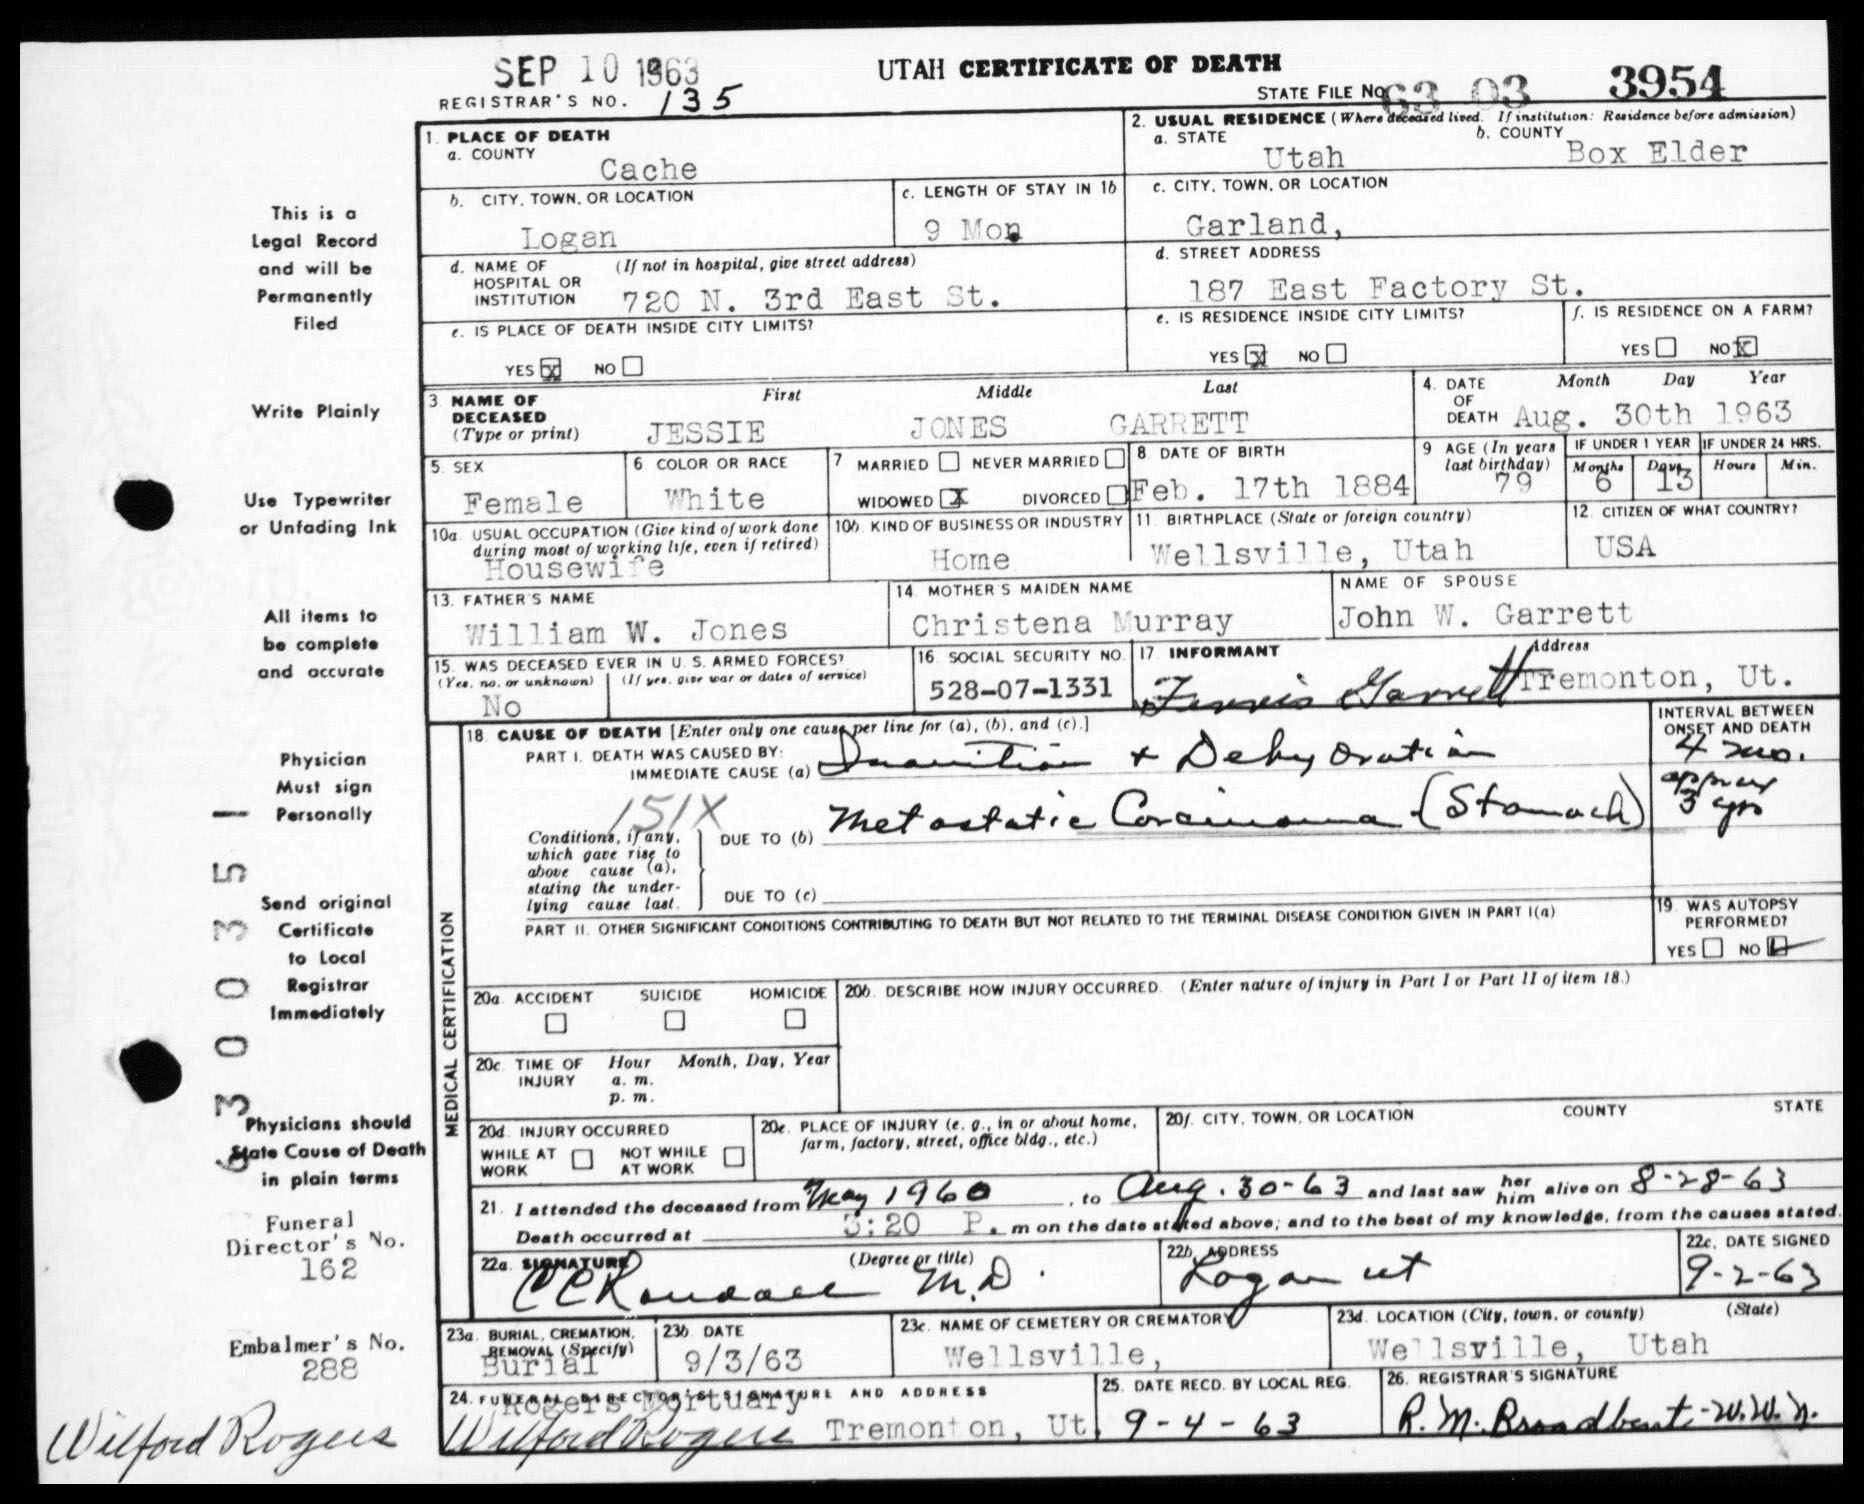 SEP 10 1963
UTAH CERTIFICATE OF DEATH
REGISTRAR'S NO. 135
STATE FILE NO. 63 03 3954
This is a
Legal Record
and will be
Permanently
Filed
Write Plainly
Use Typewriter
or Unfading Ink
All items to
be complete
and accurate
Physician
Must sign
Personally
Send original
Certificate
to Local
Registrar
Immediately
Physicians should
State Cause of Death
in plain terms
Funeral
Director's No.
162
Embalmer's No.
288
Wilford Rogers
6300035
1. PLACE OF DEATH
a. COUNTY
Cache
2. USUAL RESIDENCE (Where deceased lived. If institution: Residence before admission)
a. STATE
Utah
b. COUNTY
Box Elder
b. CITY, TOWN, OR LOCATION
Logan
c. LENGTH OF STAY IN 1b
9 Mon
c. CITY, TOWN, OR LOCATION
Garland,
d. NAME OF HOSPITAL OR INSTITUTION (If not in hospital, give street address)
720 N. 3rd East St.
d. STREET ADDRESS
187 East Factory St.
e. IS PLACE OF DEATH INSIDE CITY LIMITS?
YES X NO
e. IS RESIDENCE INSIDE CITY LIMITS?
YES X NO
f. IS RESIDENCE ON A FARM?
YES NO X
3. NAME OF DECEASED (Type or print)
First Middle Last
JESSIE JONES GARRETT
4. DATE OF DEATH
Month Day Year
Aug. 30th 1963
5. SEX
Female
6 COLOR OR RACE
White
7 MARRIED NEVER MARRIED
WIDOWED X DIVORCED
8. DATE OF BIRTH
Feb. 17th 1884
9 AGE (In years last birthday)
79
IF UNDER 1 YEAR
Months Days
6 13
IF UNDER 24 HRS.
Hours Min.
10a. USUAL OCCUPATION (Give kind of work done during most of working life, even if retired)
Housewife
10b. KIND OF BUSINESS OR INDUSTRY
Home
11. BIRTHPLACE (State or foreign country)
Wellsville, Utah
12. CITIZEN OF WHAT COUNTRY?
USA
13. FATHER'S NAME
William W. Jones
14. MOTHER'S MAIDEN NAME
Christena Murray
NAME OF SPOUSE
John W. Garrett
15. WAS DECEASED EVER IN U.S. ARMED FORCES?
(Yes, no, or unknown) (If yes, give war or dates of service)
No
16. SOCIAL SECURITY NO.
528-07-1331
17. INFORMANT Address
Garrett Tremonton, Ut.
MEDICAL CERTIFICATION
18. CAUSE OF DEATH [Enter only one cause per line for (a), (b), and (c).]
INTERVAL BETWEEN ONSET AND DEATH
PART I. DEATH WAS CAUSED BY:
IMMEDIATE CAUSE (a) Inanition + Dehydration
4 mo.
151X
Conditions, if any, which gave rise to above cause (a), stating the underlying cause last.
DUE TO (b) Metastatic Carcinoma (Stomach)
approx 3 yrs
DUE TO (c)
PART II. OTHER SIGNIFICANT CONDITIONS CONTRIBUTING TO DEATH BUT NOT RELATED TO THE TERMINAL DISEASE CONDITION GIVEN IN PART I(a)
19. WAS AUTOPSY PERFORMED?
YES NO
20a. ACCIDENT SUICIDE HOMICIDE
20b. DESCRIBE HOW INJURY OCCURRED. (Enter nature of injury in Part I or Part II of item 18.)
20c. TIME OF INJURY Hour Month, Day, Year
a. m.
p. m.
20d. INJURY OCCURRED
WHILE AT WORK NOT WHILE AT WORK
20e. PLACE OF INJURY (e. g., in or about home, farm, factory, street, office bldg., etc.)
20f. CITY, TOWN, OR LOCATION COUNTY STATE
21. I attended the deceased from May 1960, to Aug. 30-63 and last saw her him alive on 8-28-63
Death occurred at 3:20 P. m on the date stated above; and to the best of my knowledge, from the causes stated.
22a. SIGNATURE (Degree or title)
C C Randall M.D.
22b. ADDRESS
Logan ut
22c. DATE SIGNED
9-2-63
23a. BURIAL, CREMATION, REMOVAL (Specify)
Burial
23b. DATE
9/3/63
23c. NAME OF CEMETERY OR CREMATORY
Wellsville,
23d. LOCATION (City, town, or county) (State)
Wellsville, Utah
24. FUNERAL DIRECTOR'S SIGNATURE AND ADDRESS
Rogers Mortuary
Wilford Rogers Tremonton, Ut.
25. DATE RECD. BY LOCAL REG.
9-4-63
26. REGISTRAR'S SIGNATURE
R. M. Broadbent - W.W.N.